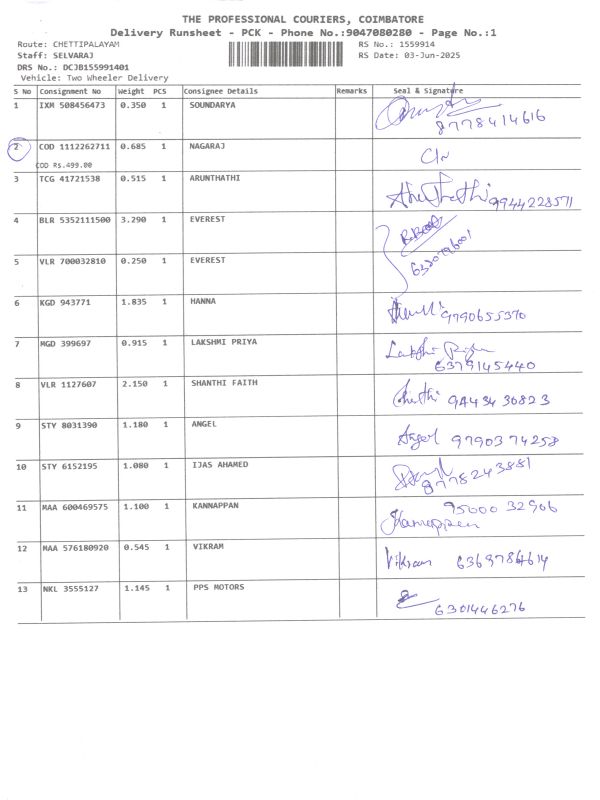 THE PROFESSIONAL COURIERS, COIMBATORE
Delivery Runsheet - PCK - Phone No.:9047080280 - Page No.:1
Route: CHETTIPALAYAM RS No.: 1559914
Staff: SELVARAJ RS Date: 03-Jun-2025
DRS No.: DCJB155991401
Vehicle: Two Wheeler Delivery
S No Consignment No Weight PCS Consignee Details Remarks Seal & Signature
1 IXM 508456473 0.350 1 SOUNDARYA
8778414616
2 COD 1112262711 0.685 1 NAGARAJ
COD Rs.499.00
3 TCG 41721538 0.515 1 ARUNTHATHI
9944228571
4 BLR 5352111500 3.290 1 EVEREST
5 VLR 700032810 0.250 1 EVEREST
6 KGD 943771 1.835 1 HANNA
9790655370
7 MGD 399697 0.915 1 LAKSHMI PRIYA
6379145440
8 VLR 1127607 2.150 1 SHANTHI FAITH
9443430823
9 STY 8031390 1.180 1 ANGEL
Angel 9790374258
10 STY 6152195 1.080 1 IJAS AHAMED
8778243881
11 MAA 600469575 1.100 1 KANNAPPAN
95000 32906
12 MAA 576180920 0.545 1 VIKRAM
Vikram
13 NKL 3555127 1.145 1 PPS MOTORS
6301446276